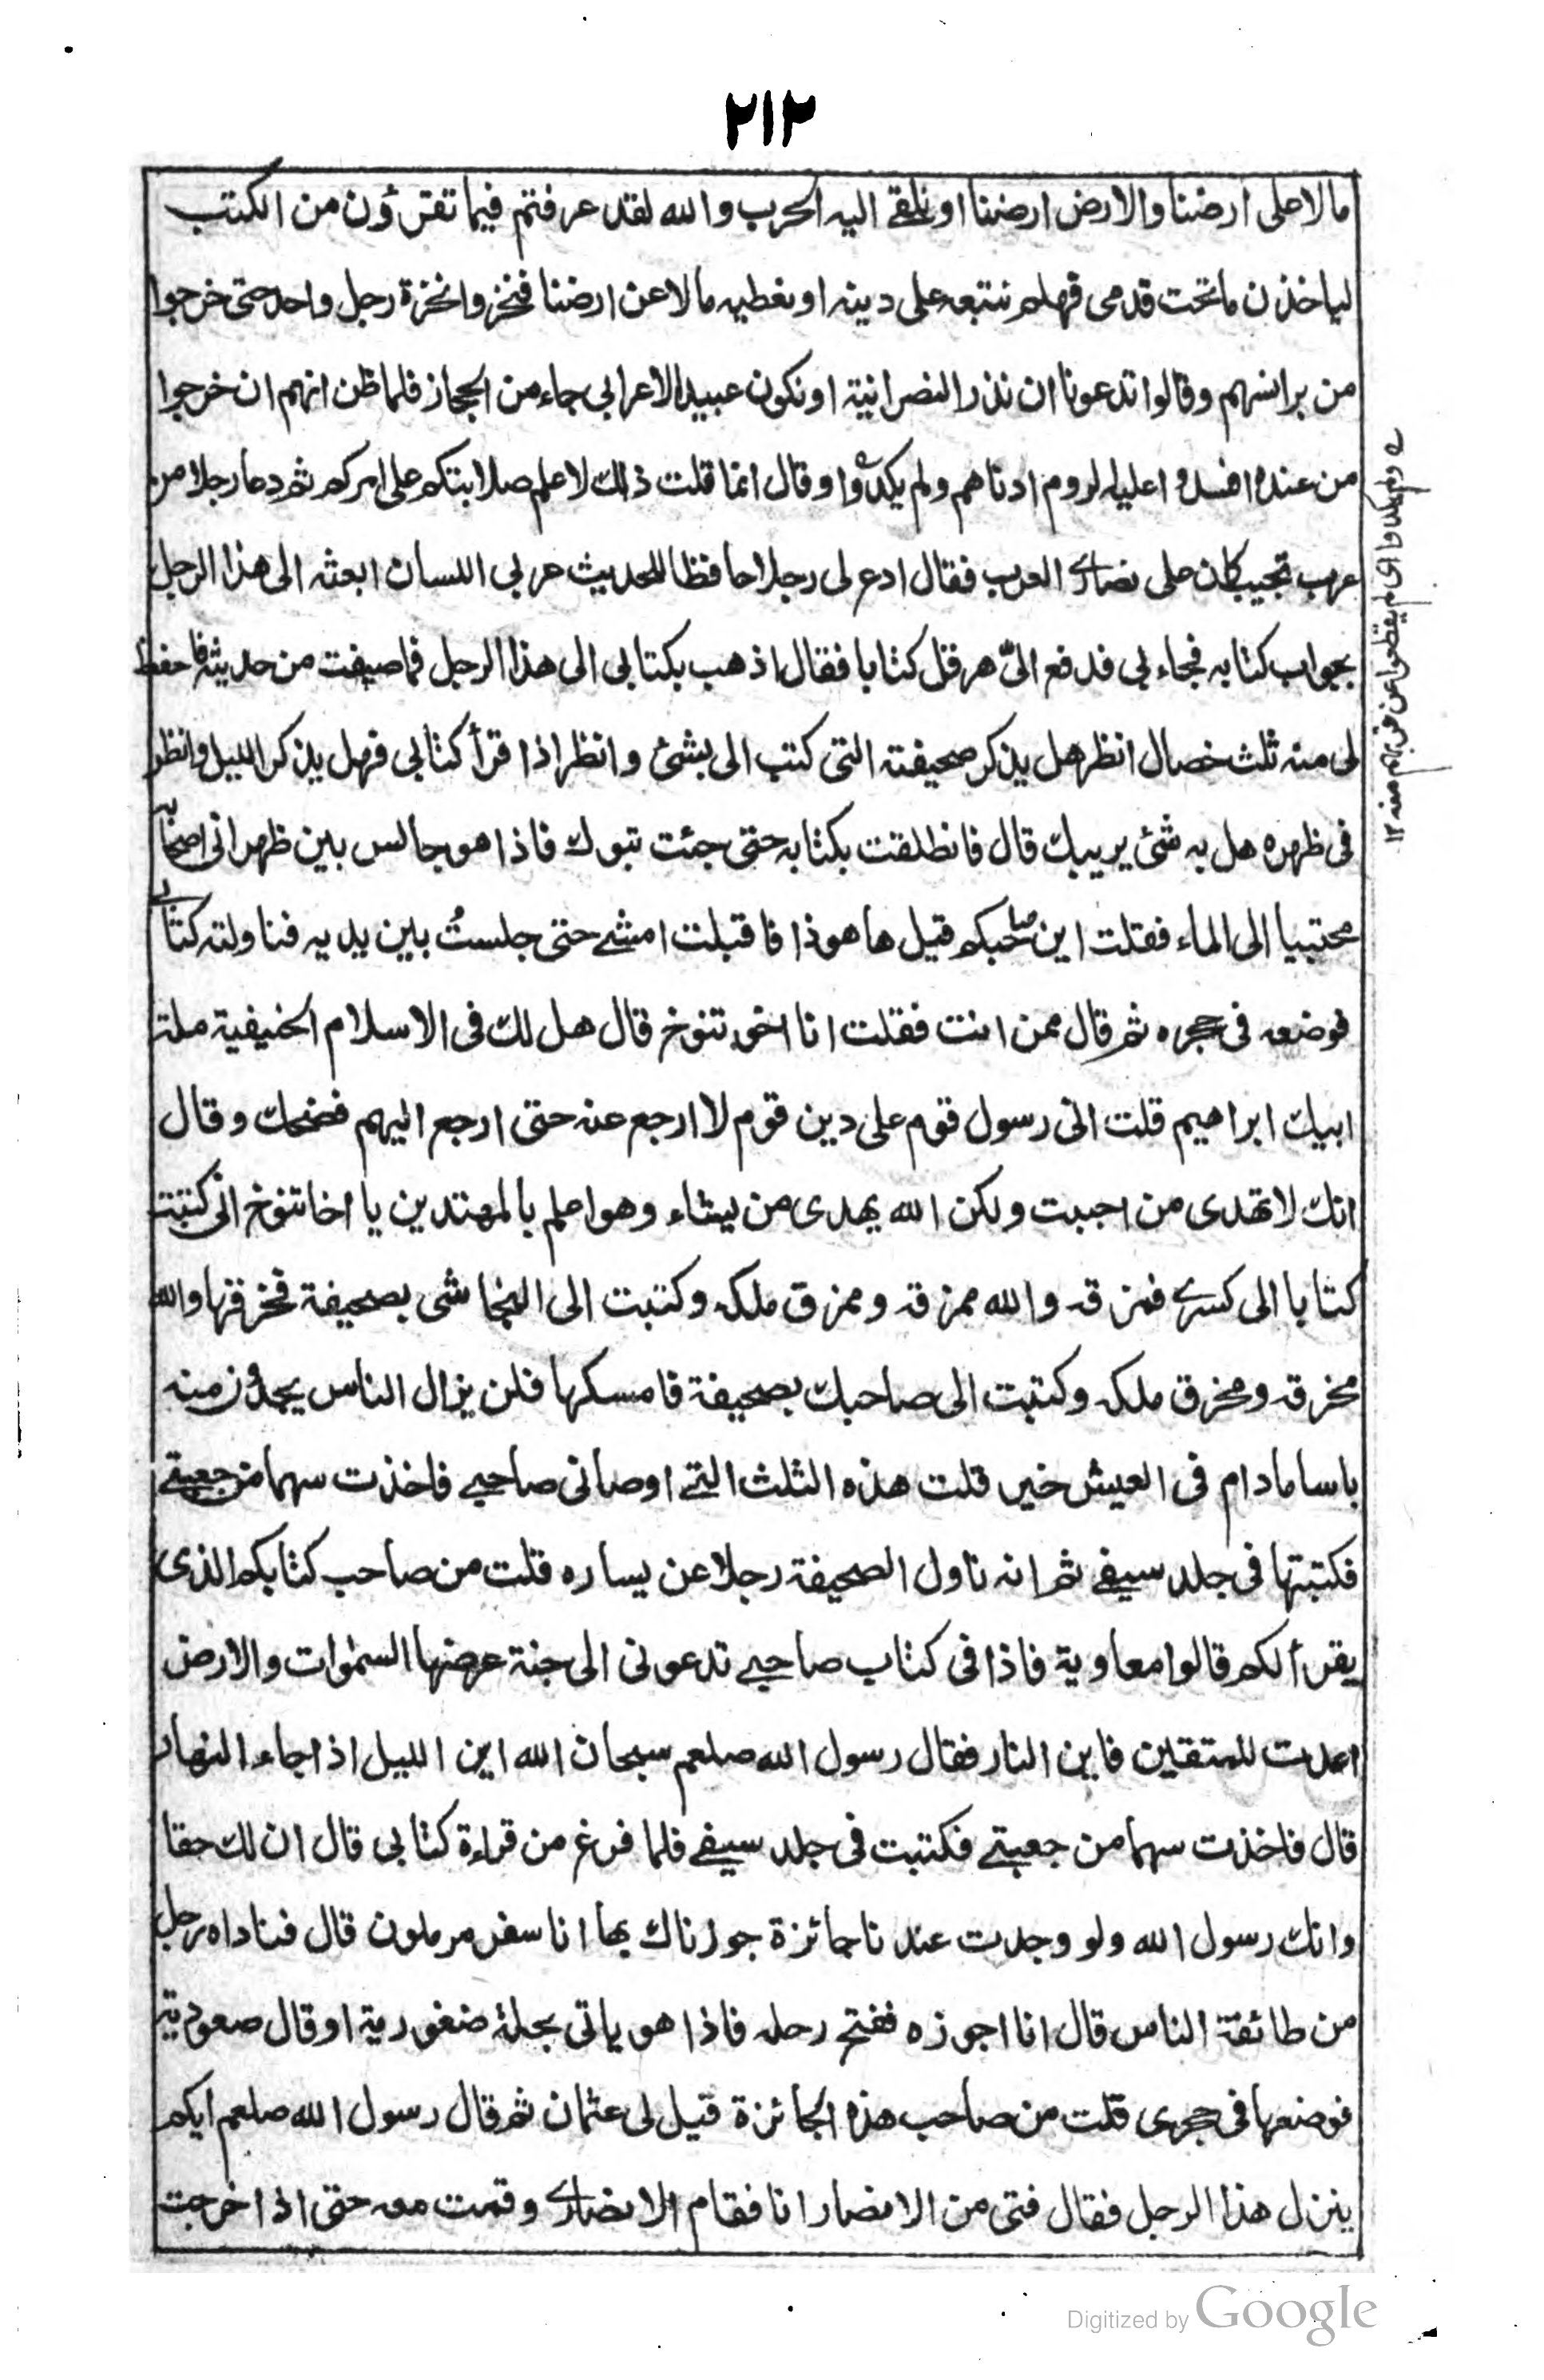 ٢١٢
مالا على ارضنا والارض ارضنا او نلقى اليه الحرب والله لقد عرفتم فيما تقرؤن من الكتب
لياخذن ما تحت قدمى فهلم نتبعه على دينه او نعطيه مالا عن ارضنا فنخروا نخرة رجل واحد حتى خرجوا
من برانسهم وقالوا تدعونا ان نذر النصرانية او نكون عبيدا لاعرابى جاء من الحجاز فلما ظن انهم ان خرجوا
من عنده افسدوا عليه الروم ادناهم ولم يكدوا وقال انما قلت ذلك لاعلم صلابتكم على امركم ثم دعا رجلا من
عرب تجيب كان على نصارى العرب فقال ادع لى رجلا حافظا للحديث عربى اللسان ابعثه الى هذا الرجل
بجواب كتابه فجاء بى فدفع الىّ هرقل كتابا فقال اذهب بكتابى الى هذا الرجل فما صيفت من حديثه فاحفظ
لى منه ثلث خصال انظر هل يذكر صحيفته التى كتب الى بشئ وانظر اذا قرأ كتابى فهل يذكر الليل وانظر
فى ظهره هل به شئ يريبك قال فانطلقت بكتابه حتى جئت تبوك فاذا هو جالس بين ظهرانى اصحابه
محتبيا الى الماء فقلت اين صاحبكم قيل ها هو ذا فاقبلت امشى حتى جلستُ بين يديه فناولته كتابى
فوضعه فى حجره ثم قال ممن انت فقلت انا اخو تنوخ قال هل لك فى الاسلام الحنيفية ملة
ابيك ابراهيم قلت انى رسول قوم على دين قوم لا ارجع عنه حتى ارجع اليهم فضحك وقال
انك لا تهدى من احببت ولكن الله يهدى من يشاء وهو اعلم بالمهتدين يا اخا تنوخ انى كتبت
كتابا الى كسرى فمزقه والله ممزقه وممزق ملكه وكتبت الى النجاشى بصحيفة فخرقها والله
مخرقه ومخرق ملكه وكتبت الى صاحبك بصحيفة فامسكها فلن يزال الناس يجدون منه
باسا مادام فى العيش خير قلت هذه الثلث التى اوصانى صاحبى فاخذت سهما من جعبتى
فكتبتها فى جلد سيفى ثم انه ناول الصحيفة رجلا عن يساره قلت من صاحب كتابكم الذى
يقرأ لكم قالوا معاوية فاذا فى كتاب صاحبى تدعونى الى جنة عرضها السمٰوات والارض
اعدت للمتقين فاين النار فقال رسول الله صلعم سبحان الله اين الليل اذا جاء النهار
قال فاخذت سهما من جعبتى فكتبت فى جلد سيفى فلما فرغ من قراءة كتابى قال ان لك حقا
وانك رسول الله ولو وجدت عندنا جائزة جوزناك بها انا سفر مرملون قال فناداه رجل
من طائفة الناس قال انا اجوزه ففتح رحله فاذا هو ياتى بحلة ضفورية او قال صعودية
فوضعها فى حجرى قلت من صاحب هذه الجائزة قيل لى عثمان ثم قال رسول الله صلعم ايكم
ينزل هذا الرجل فقال فتى من الانصار انا فقام الانصارى وقمت معه حتى اذا خرجت
ولم يكدوا اى لم يقطعوا عن منه ١٢
Digitized by Google